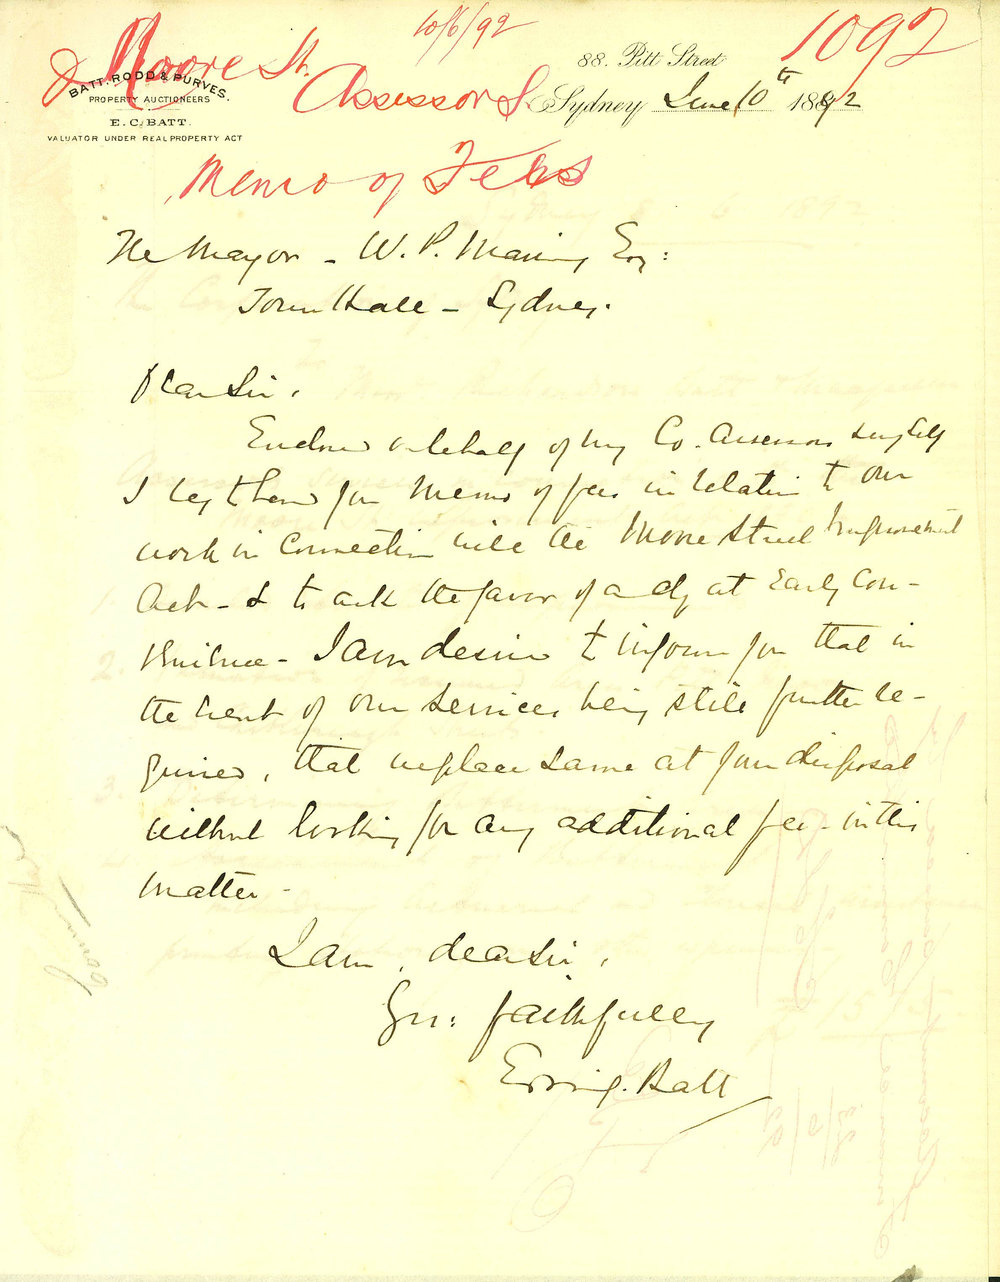 10/6/92
1092
Moore St.
Assessors
Memo of Fees
BATT. RODD & PURVES.
PROPERTY AUCTIONEERS
E. C. BATT.
VALUATOR UNDER REAL PROPERTY ACT
88. Pitt Street
Sydney June 10th 1892
The Mayor - W. P. Manning Esq:
Town Hall - Sydney.
Dear Sir,
On behalf of my Co. Assessors & myself
I beg to hand you Memo of fees in relation to our
work in connection with the Moore Street Improvement
Act - & to ask the favor of a chq at early con-
venience - I am desired to inform you that in
the event of our services being still further re-
quired, that we place same at your disposal
without looking for any additional fee - in this
matter -
I am, dear Sir,
Yrs: faithfully
Batt